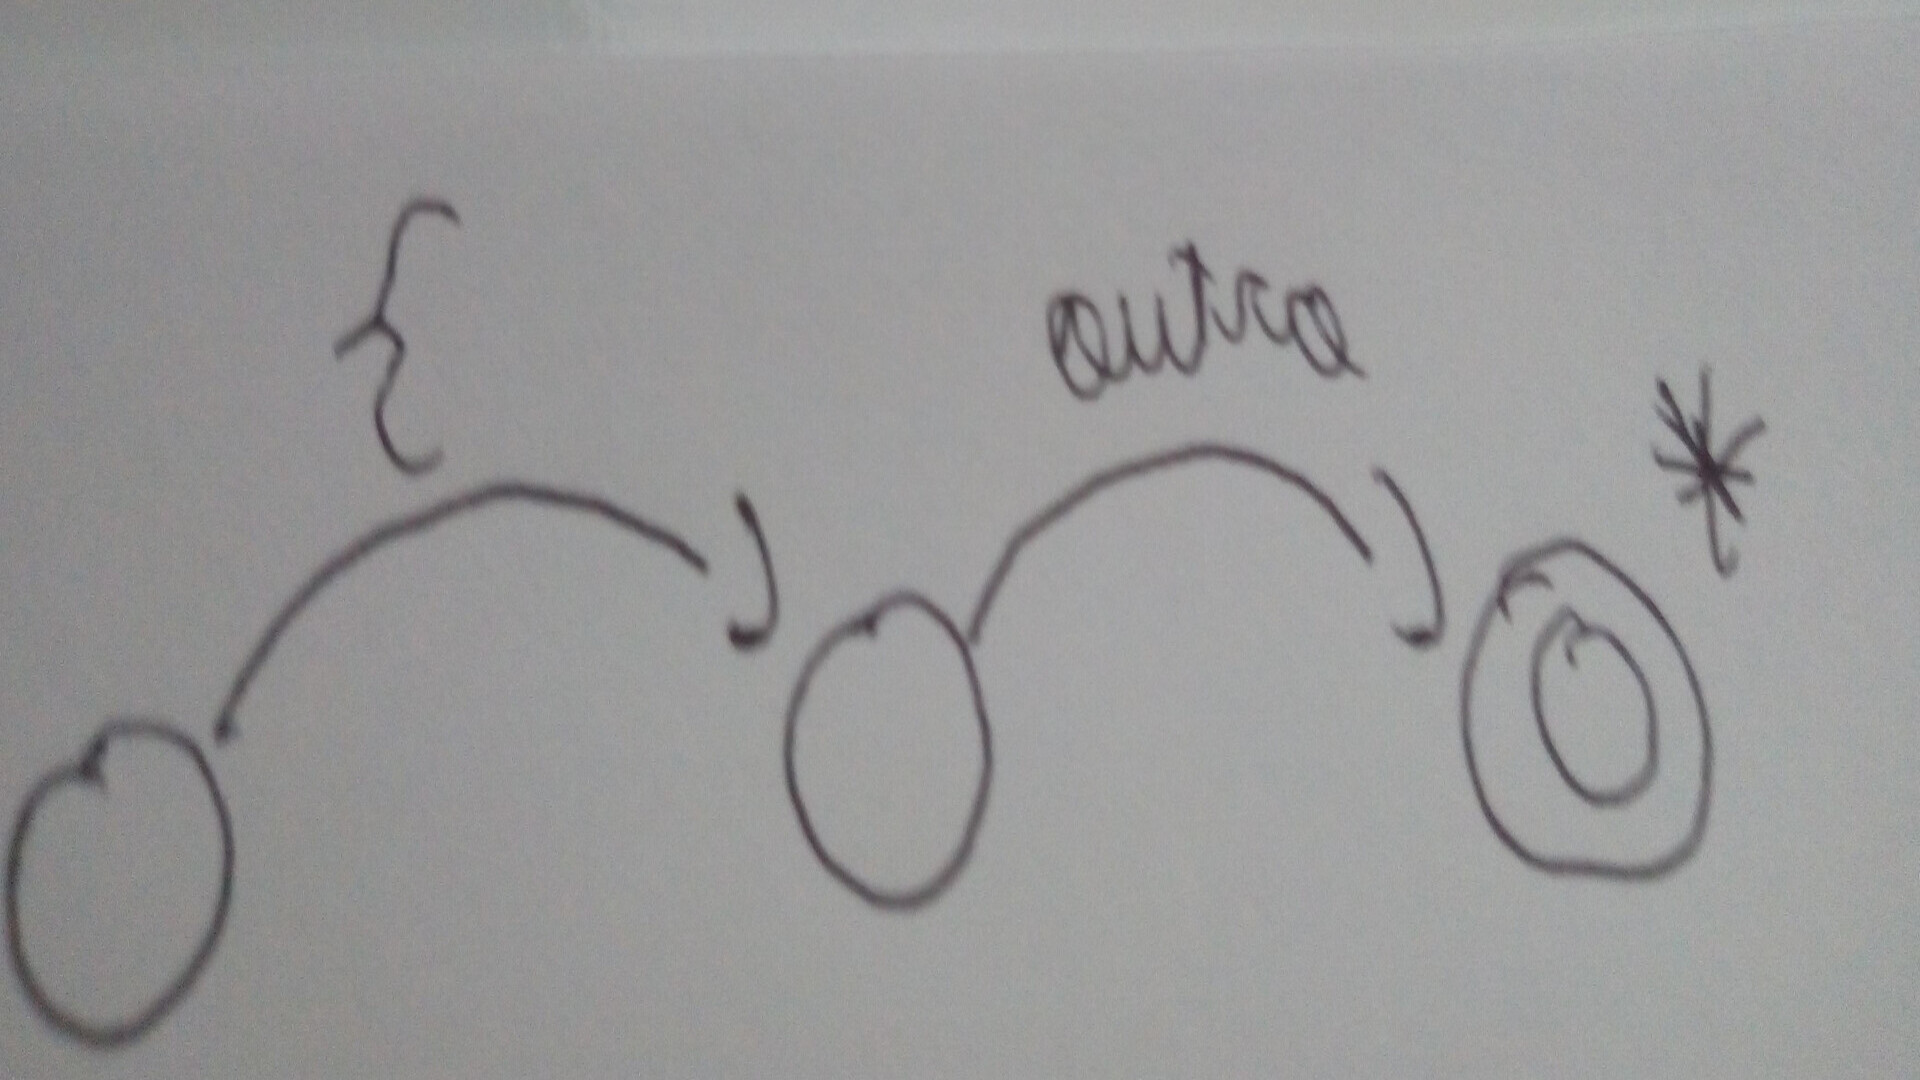 {
outro
*